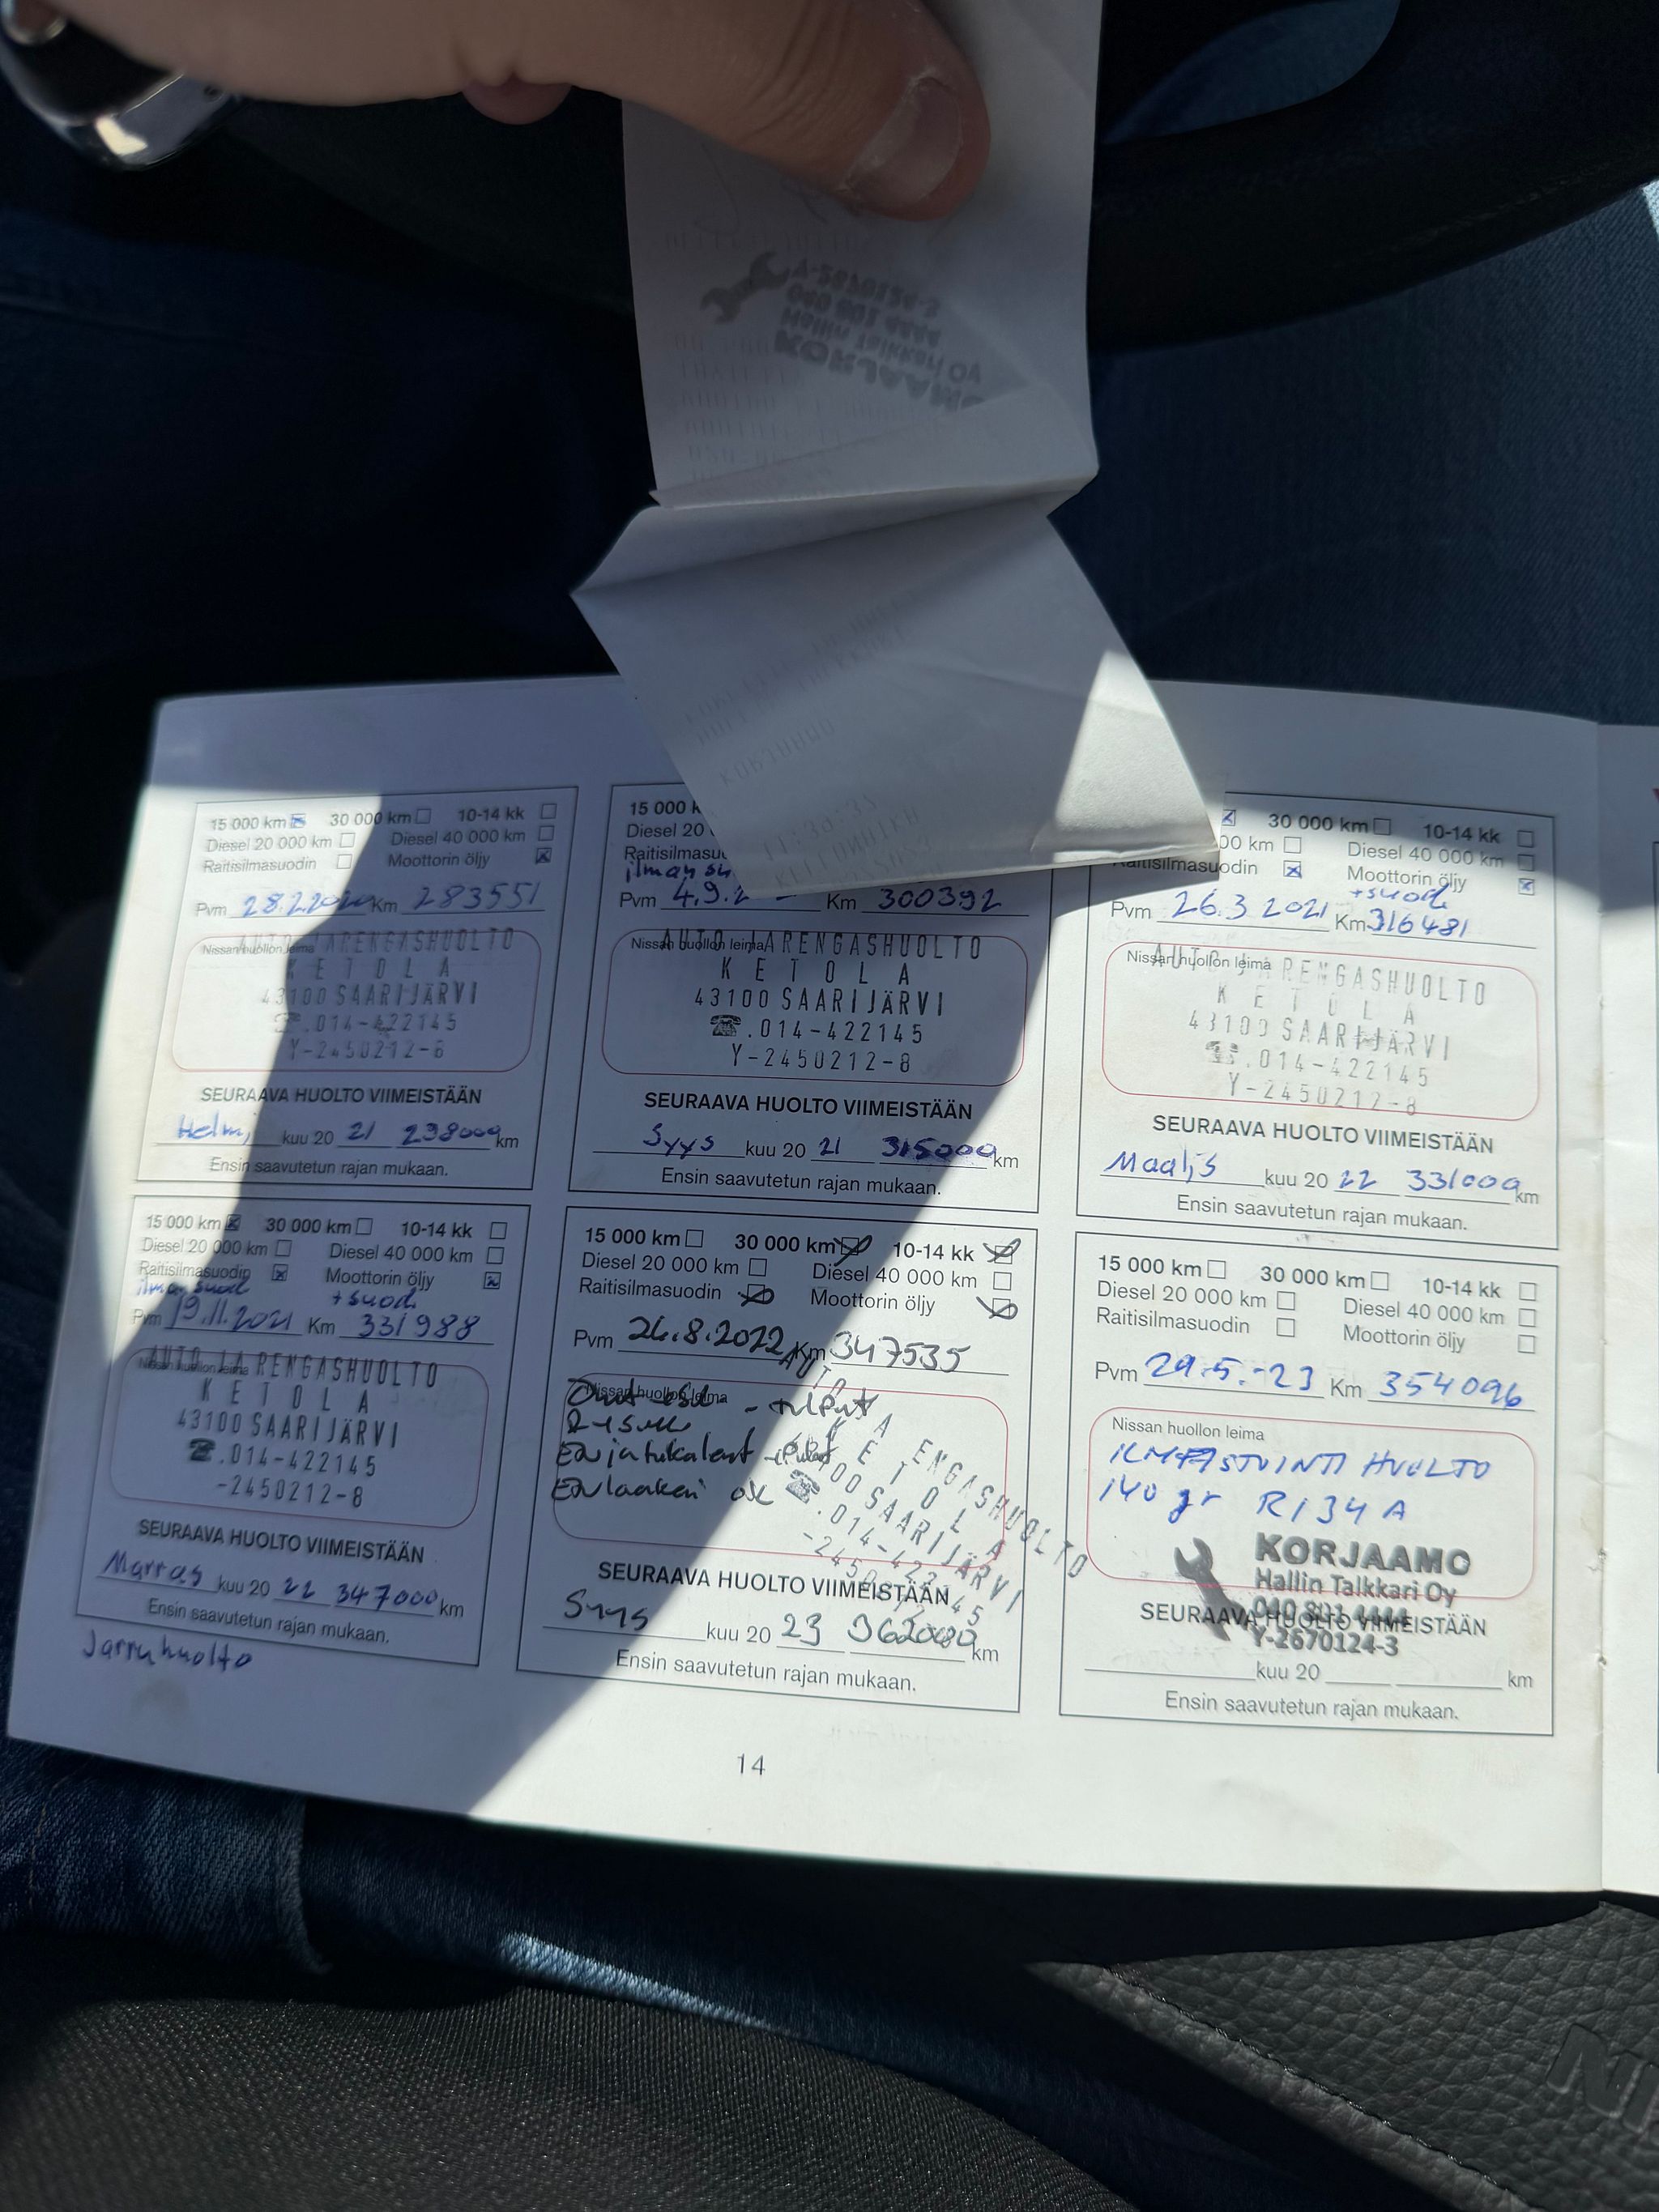 KORJAAMO
Hallin Talkkari Oy
040 801 4444
Y-2670124-3
15 000 km 30 000 km 10-14 kk
Diesel 20 000 km Diesel 40 000 km
Raitisilmasuodin Moottorin öljy
Pvm 28.2.2020 Km 283551
Nissan huollon leima
AUTO JA RENGASHUOLTO
KETOLA
43100 SAARIJÄRVI
☎.014-422145
Y-2450212-8
SEURAAVA HUOLTO VIIMEISTÄÄN
Helmi kuu 20 21 298000 km
Ensin saavutetun rajan mukaan.
15 000 k
Diesel 20
Raitisilmasu
ilman su
Pvm 4.9.2 Km 300392
Nissan huollon leima
AUTO JA RENGASHUOLTO
KETOLA
43100 SAARIJÄRVI
☎.014-422145
Y-2450212-8
SEURAAVA HUOLTO VIIMEISTÄÄN
Syys kuu 20 21 315000 km
Ensin saavutetun rajan mukaan.
30 000 km 10-14 kk
00 km Diesel 40 000 km
Raitisilmasuodin Moottorin öljy
+suod.
Pvm 26.3 2021 Km 316481
Nissan huollon leima
AUTO JA RENGASHUOLTO
KETOLA
43100 SAARIJÄRVI
☎.014-422145
Y-2450212-8
SEURAAVA HUOLTO VIIMEISTÄÄN
Maalis kuu 20 22 331000 km
Ensin saavutetun rajan mukaan.
15 000 km 30 000 km 10-14 kk
Diesel 20 000 km Diesel 40 000 km
Raitisilmasuodin Moottorin öljy
ilma suod +suod.
Pvm 19.11.2021 Km 331988
Nissan huollon leima
AUTO JA RENGASHUOLTO
KETOLA
43100 SAARIJÄRVI
☎.014-422145
-2450212-8
SEURAAVA HUOLTO VIIMEISTÄÄN
Marras kuu 20 22 347000 km
Ensin saavutetun rajan mukaan.
Jarruhuolto
15 000 km 30 000 km 10-14 kk
Diesel 20 000 km Diesel 40 000 km
Raitisilmasuodin Moottorin öljy
Pvm 26.8.2022 Km 347535
Nissan huollon leima
AUTO JA RENGASHUOLTO
KETOLA
43100 SAARIJÄRVI
☎.014-422145
-2450212
SEURAAVA HUOLTO VIIMEISTÄÄN
Syys kuu 20 23 362000 km
Ensin saavutetun rajan mukaan.
15 000 km 30 000 km 10-14 kk
Diesel 20 000 km Diesel 40 000 km
Raitisilmasuodin Moottorin öljy
Pvm 29.5.-23 Km 354096
Nissan huollon leima
ILMASTOINTI HUOLTO
140 gr R134A
KORJAAMO
Hallin Talkkari Oy
040 801 4444
SEURAAVA HUOLTO VIIMEISTÄÄN
Y-2670124-3
kuu 20 km
Ensin saavutetun rajan mukaan.
14